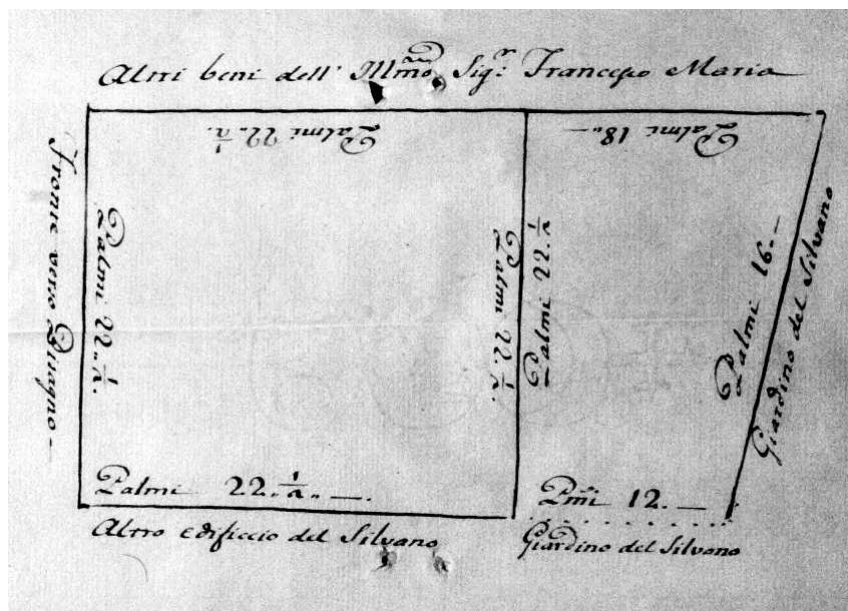 Altri beni dell' Illmo Sigr. Francesco Maria
Palmi 22. 1/2
Palmi 18. —
Fronte verso Bisagno —
Palmi 22. 1/2.
Palmi 22. 1/2.
Palmi 22. 1/2
Palmi 16. —
Giardino del Silvano
Palmi 22. 1/2 . —.
Pmi 12. —
Altro edificcio del Silvano
Giardino del Silvano